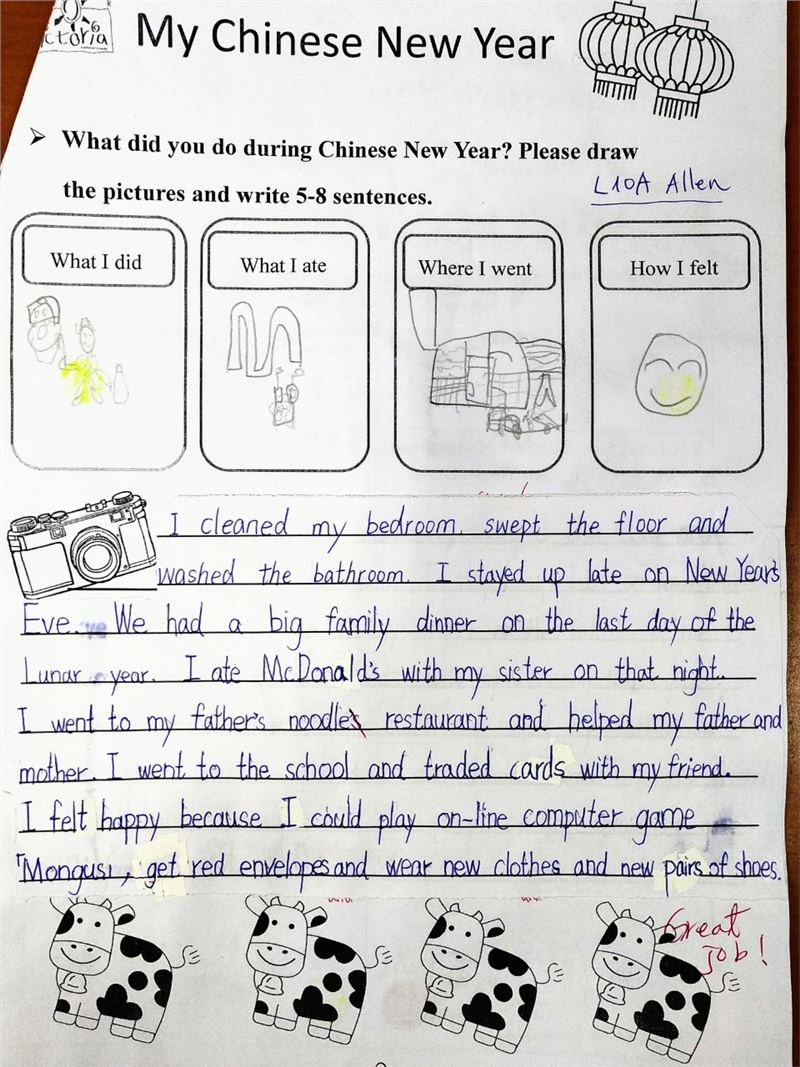 ctoria
My Chinese New Year
➢ What did you do during Chinese New Year? Please draw
the pictures and write 5-8 sentences.
L10A Allen
What I did
What I ate
Where I went
How I felt
I cleaned my bedroom, swept the floor and
washed the bathroom. I stayed up late on New Year's
Eve. We had a big family dinner on the last day of the
Lunar year. I ate McDonald's with my sister on that night.
I went to my father's noodles restaurant and helped my father and
mother. I went to the school and traded cards with my friend.
I felt happy because I could play on-line computer game
「Mongusı, get red envelopes and wear new clothes and new pairs of shoes.
Great
job!